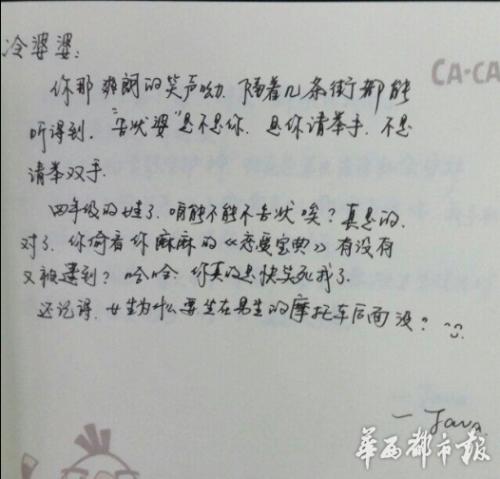 冷婆婆:
CA-CA
你那爽朗的笑声呦, 隔着几条街都能
听得到. "告状婆"是不是你. 是你请举手. 不是
请举双手.
四年级的娃了. 咱能不能不告状唉? 真是的.
对了. 你偷看你麻麻的《恋爱宝典》有没有
又被逮到? 哈哈. 你真的是快笑死我了.
还记得. 女生为什么要坐在男生的摩托车后面没?
— Java
华西都市报